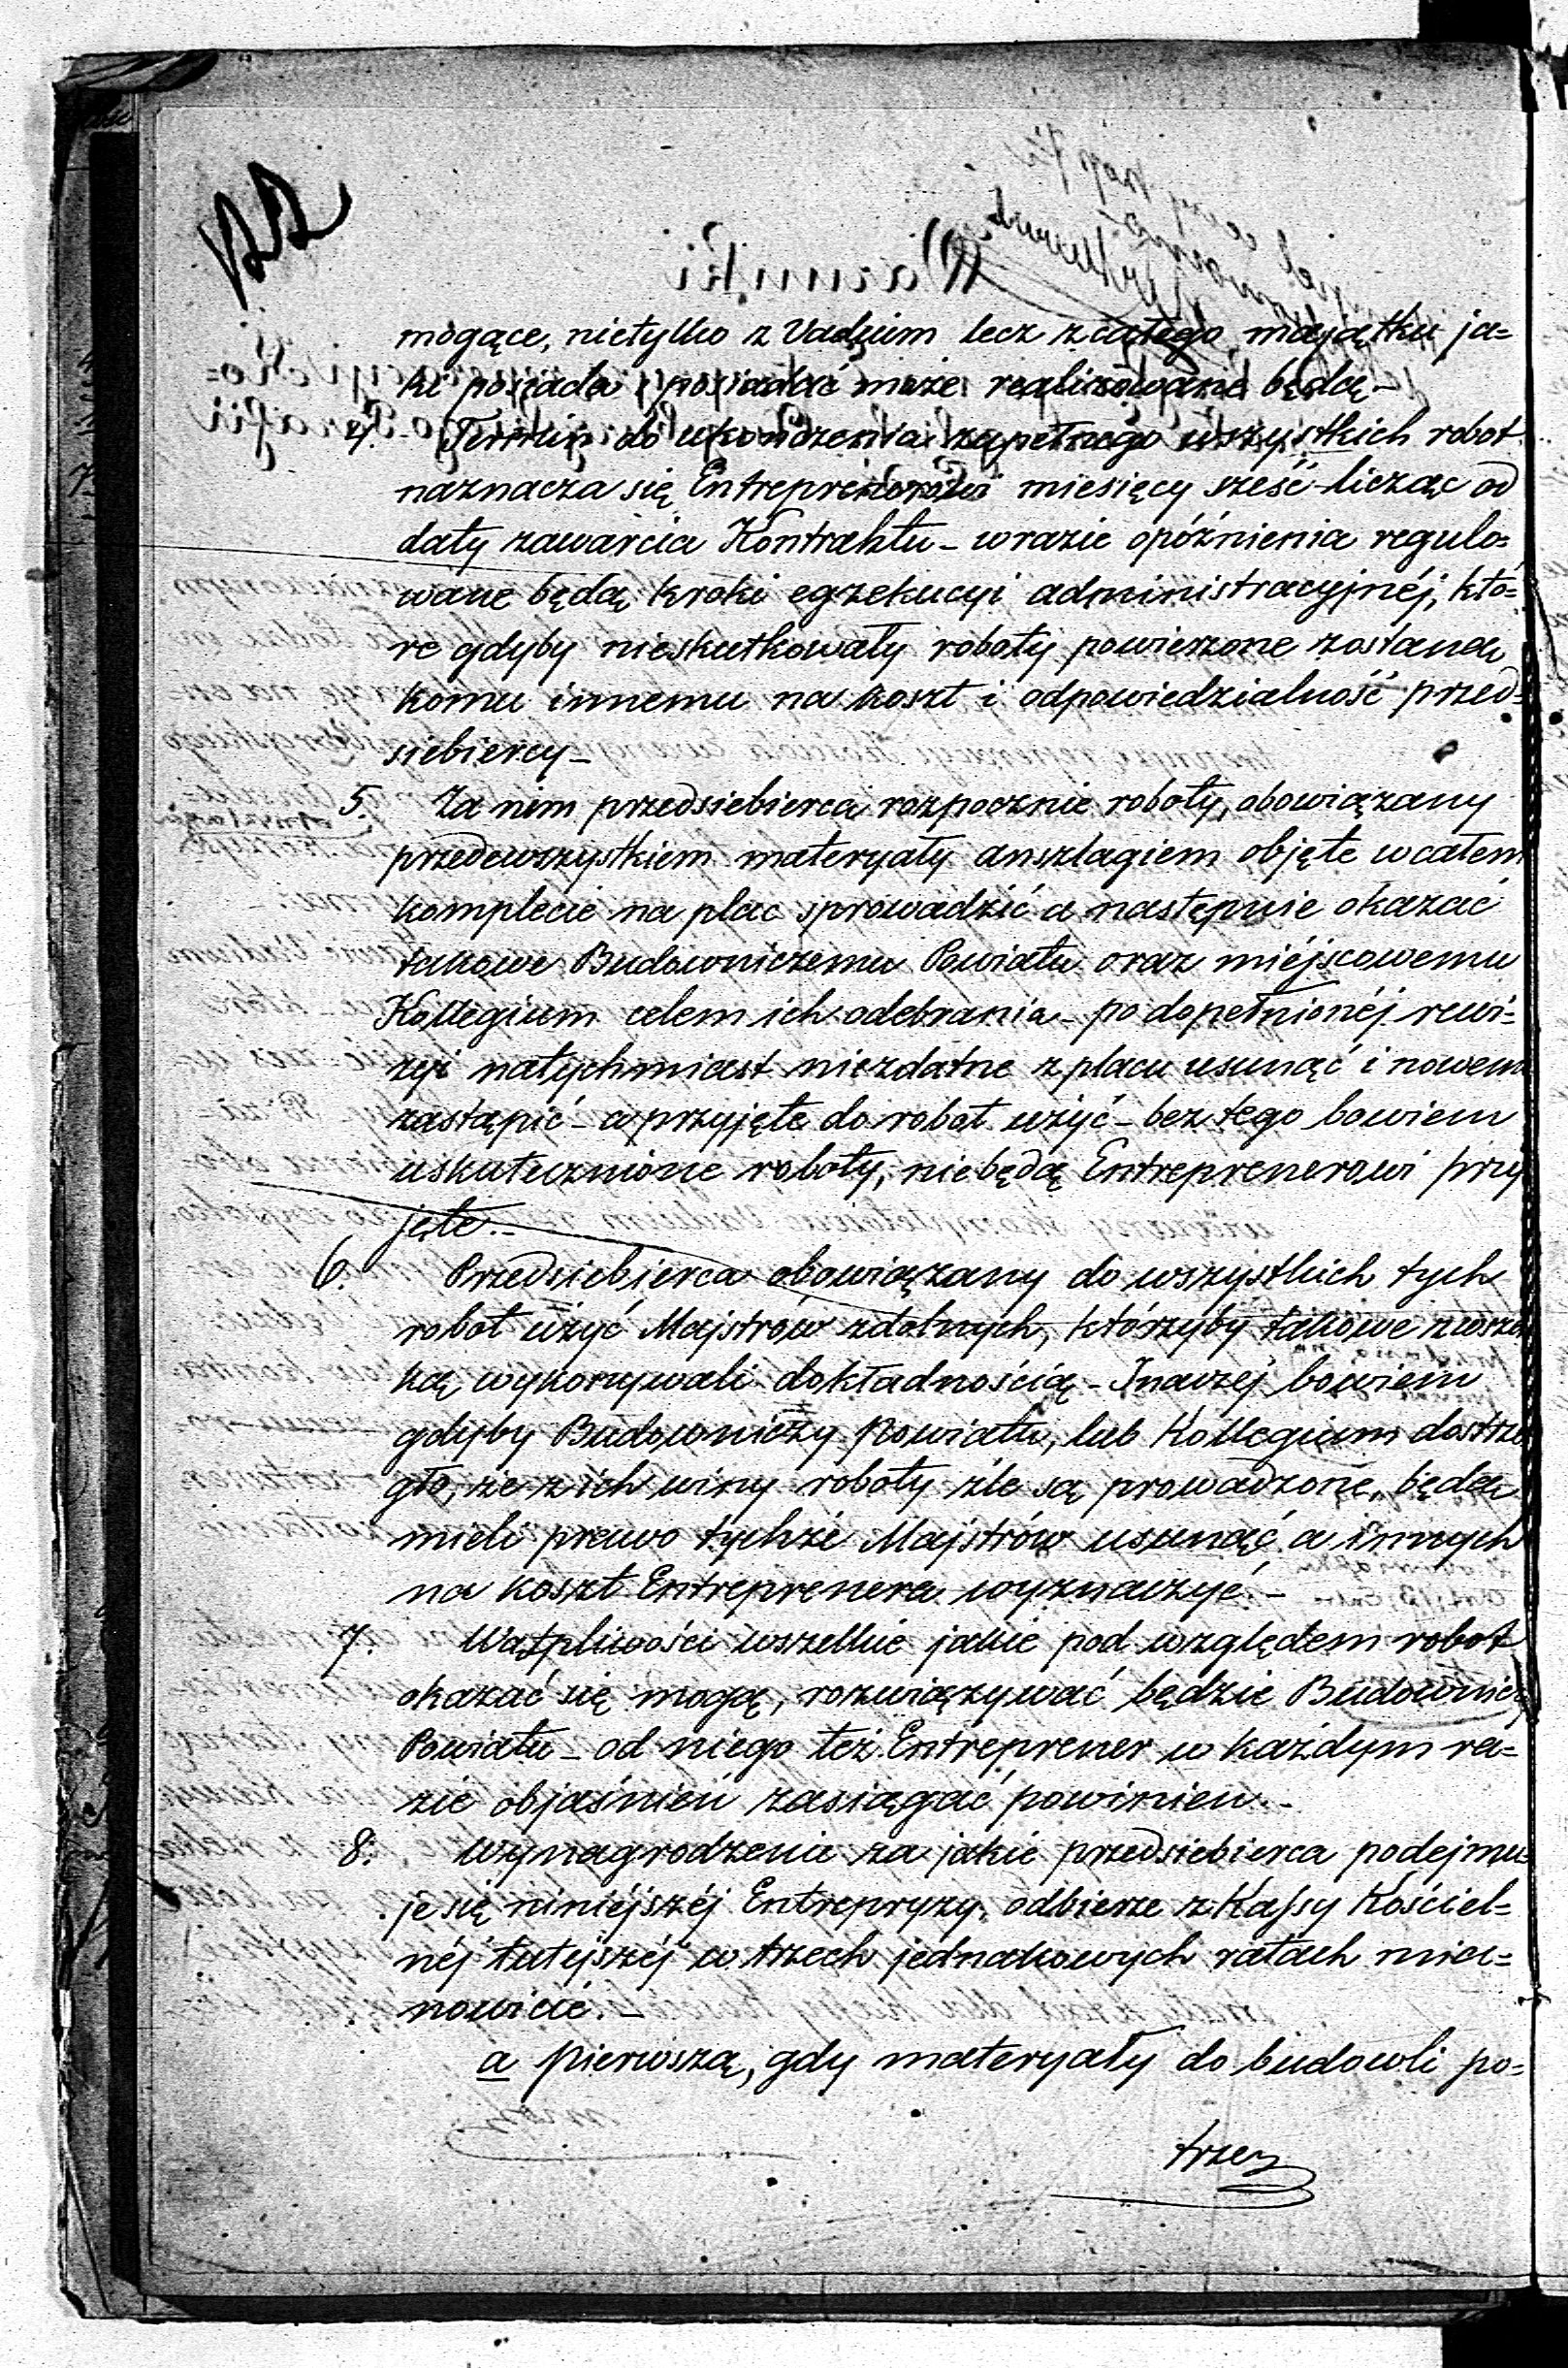 mogące, nietylko z Vadium lecz z całego majątku ja=
ki posiada i posiadać może realizowane będą –
4. Termin do ukończenia zupełnego wszystkich robot
naznacza się Entreprenerowi miesięcy sześć licząc od
daty zawarcia Kontraktu – wrazie opóźnienia regulo=
wane będą kroki egzekucyi administracyjnéj, któ=
re gdyby nieskutkowały roboty powierzone zostaną
komu innemu na koszt i odpowiedzialność przed=
siebiercy –
5. Za nim przedsiebierca rozpocznie roboty, obowiązany
przedewszystkiem materyały anszlagiem objęte w całem
komplecie na plac sprowadzić a następnie okazać
takowe Budowniczemu Powiatu oraz miéjscowemu
Kollegium celem ich odebrania – po dopełnionéj rewi=
zyi natychmiast niezdatne z placu usunąć i nowem
zastąpić – a przyjęte do robot użyć – bez tego bowiem
uskutecznione roboty, niebędą Entreprenerowi przy
jęte. –
6. Przedsiebierca obowiązany do wszystkich tych
robot użyć Majstrów zdolnych, którzyby takowe
ką wykonywali dokładnością – Inaczéj bowiem
gdyby Budowniczy Powiatu, lub Kollegium dostrze
gło, że z ich winy roboty źle są prowadzone, będą
mieli prawo tychże Majstrów usunąć a innych
na koszt Entreprenera wyznaczyć –
7. Wątpliwości wszelkie jakie pod względem robot
okazać się mogą, rozwiązywać będzie Budownicz
Powiatu – od niego też Entreprener w każdym ra=
zie objaśnień zasiągać powinien. –
8. Wynagrodzenie za jakie przedsiebierca podejmu=
je się niniéjszéj Entrepryzy, odbierze z Kassy Kościel=
néj tutéjszéj w trzech jednakowych ratach mia=
nowicie. –
a pierwszą, gdy materyały do budowli po=
trzeb